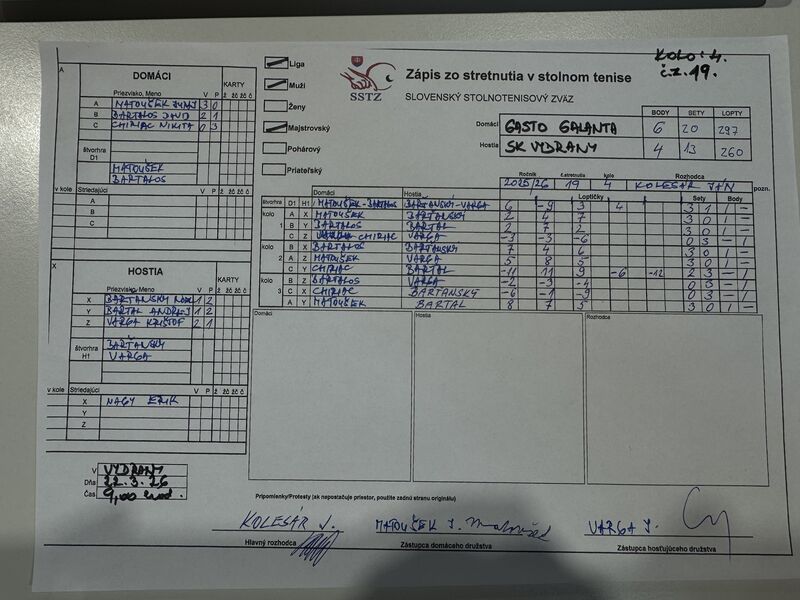 KOLO: 4.
č.z. 19.
A
DOMÁCI
Priezvisko, Meno V P KARTY
Ž ŽČ ŽČ Č
A MATOUŠEK 3 0
B BARTALOS DAVID 2 1
C CHIRIAC NIKITA 0 3
štvorhra
D1
MATOUŠEK
BARTALOS
v kole Striedajúci V P Ž ŽČ ŽČ Č
A
B
C
X
HOSTIA
Priezvisko, Meno V P KARTY
Ž ŽČ ŽČ Č
X BARTANSKÝ 1 2
Y BARTAL ANDREJ 1 2
Z VARGA KRIŠTOF 2 1
štvorhra
H1
BARTANSKÝ
VARGA
v kole Striedajúci V P Ž ŽČ ŽČ Č
X NAGY ERIK
Y
Z
V VYDRANY
Dňa 22.3.26
Čas 9,00 hod.
Liga
Muži
Ženy
Majstrovský
Pohárový
Priateľský
SSTZ
Zápis zo stretnutia v stolnom tenise
SLOVENSKÝ STOLNOTENISOVÝ ZVÄZ
BODY SETY LOPTY
Domáci GASTO GALANTA 6 20 297
Hostia SK VYDRANY 4 13 260
Ročník č.stretnutia kolo Rozhodca
2025/26 19 4 KOLESÁR JÁN pozn.
Domáci Hostia Loptičky Sety Body
štvorhra D1 H1 MATOUŠEK-BARTALOS BARTANSKÝ-VARGA 6 -9 3 4 3 1 1 -
kolo A X MATOUŠEK BARTANSKÝ 2 4 7 3 0 1 -
1 B Y BARTALOS BARTAL 2 7 2 3 0 1 -
C Z CHIRIAC VARGA -3 -3 -6 0 3 - 1
kolo B X BARTALOS BARTANSKÝ 7 4 6 3 0 1 -
2 A Z MATOUŠEK VARGA 5 8 5 3 0 1 -
C Y CHIRIAC BARTAL -11 11 9 -6 -12 2 3 - 1
kolo B Z BARTALOS VARGA -2 -3 -4 0 3 - 1
3 C X CHIRIAC BARTANSKÝ -6 -1 -9 0 3 - 1
A Y MATOUŠEK BARTAL 8 7 5 3 0 1 -
Domáci Hostia Rozhodca
Pripomienky/Protesty (ak napostačuje priestor, použite zadnú stranu originálu)
KOLESÁR J. MATOUŠEK J. VARGA J.
Hlavný rozhodca Zástupca domáceho družstva Zástupca hosťujúceho družstva